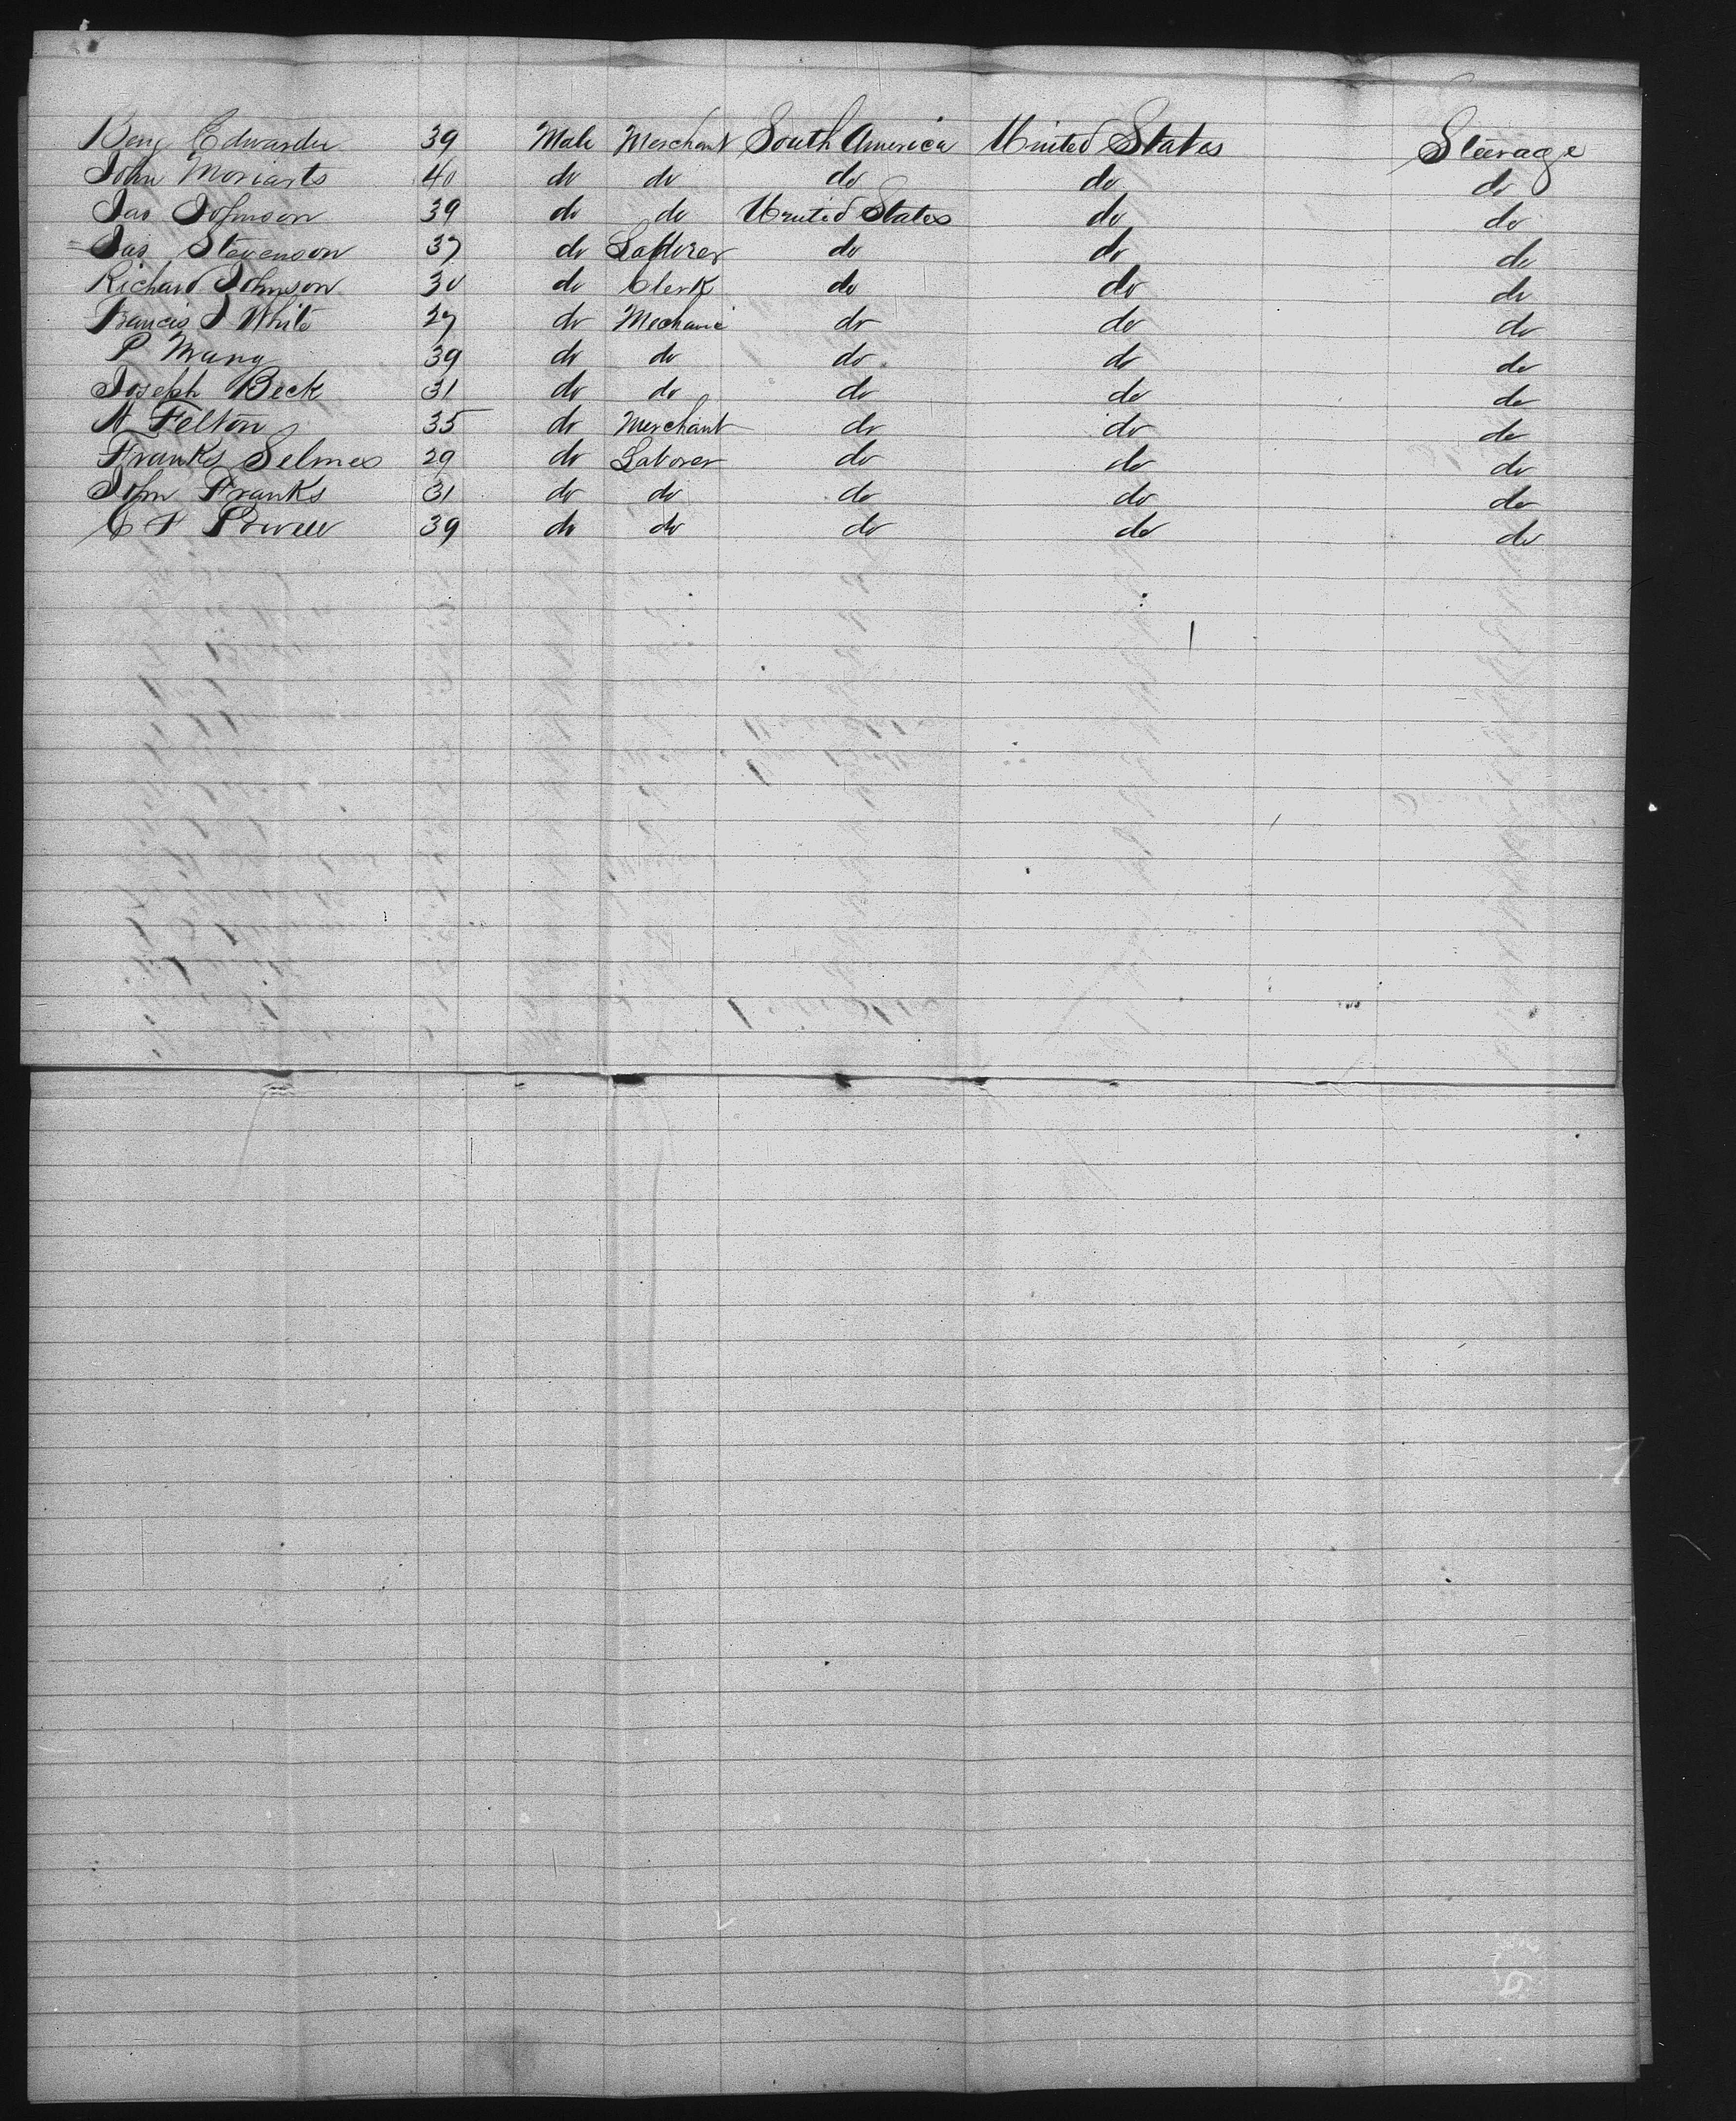 Benj Edwards 39 Male Merchant South America United States Steerage
John Moriarts 40 do do do do do
Jas Johnson 39 do do United States do do
Jas Stevenson 37 do Laborer do do do
Richard Johnson 30 do Clerk do do do
Francis J White 27 do Mechanic do do do
P 39 do do do do do
Joseph Beck 31 do do do do do
Felton 35 do Merchant do do do
Franks Selmes 29 do Laborer do do do
John Franks 31 do do do do do
C F Powell 39 do do do do do